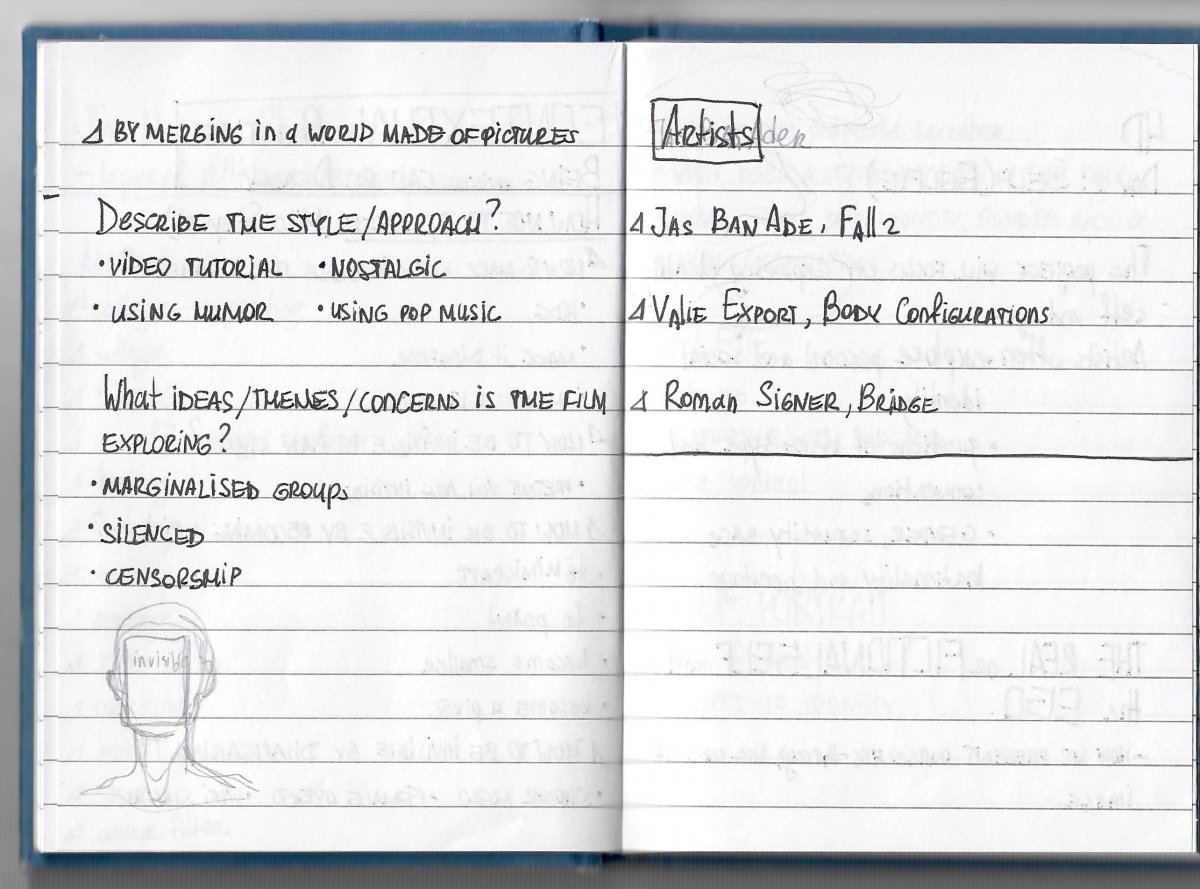 ⊿ BY MERGING in a WORLD MADE OF PICTURES
DESCRIBE THE STYLE/APPROACH?
• VIDEO TUTORIAL • NOSTALGIC
• USING HUMOR • USING POP MUSIC
What IDEAS/THEMES/CONCERNS is THE FILM
EXPLORING?
• MARGINALISED GROUPS
• SILENCED
• CENSORSHIP
invisible
Artists
⊿ JAS BAN ADE, FAll 2
⊿ VALIE EXPORT, BODY CONFIGURATIONS
⊿ Roman SIGNER, BRIDGE